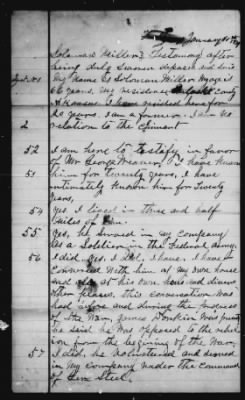 January 16
Solomon Millers Testimony after
being duly sworn deposes and said
My name is Solomon Miller My age is
66 years. My residence Pulaski County
Arkansas I have resided here for
20 years. I am a farmer. I am no
2 relation to the Claimant
52 I am here to testify in favor
of Mr George Weaver, I have known
51 him for twenty years, I have
intimately known him for twenty
years,
54 Yes I lived in three and half
miles of him.
55 Yes, he served in my company
as a Soldier in the Federal army.
56 I did, yes, I did, I have. I have
conversed with him at my own house
and also at his own house and divers
other places, this conversation was
had before and during the
of the War, James was present
he said he was opposed to the rebel
ion from the beginning of the War,
57 I did, he volunteered and served
in my Company under the Command
of Gen Steel.